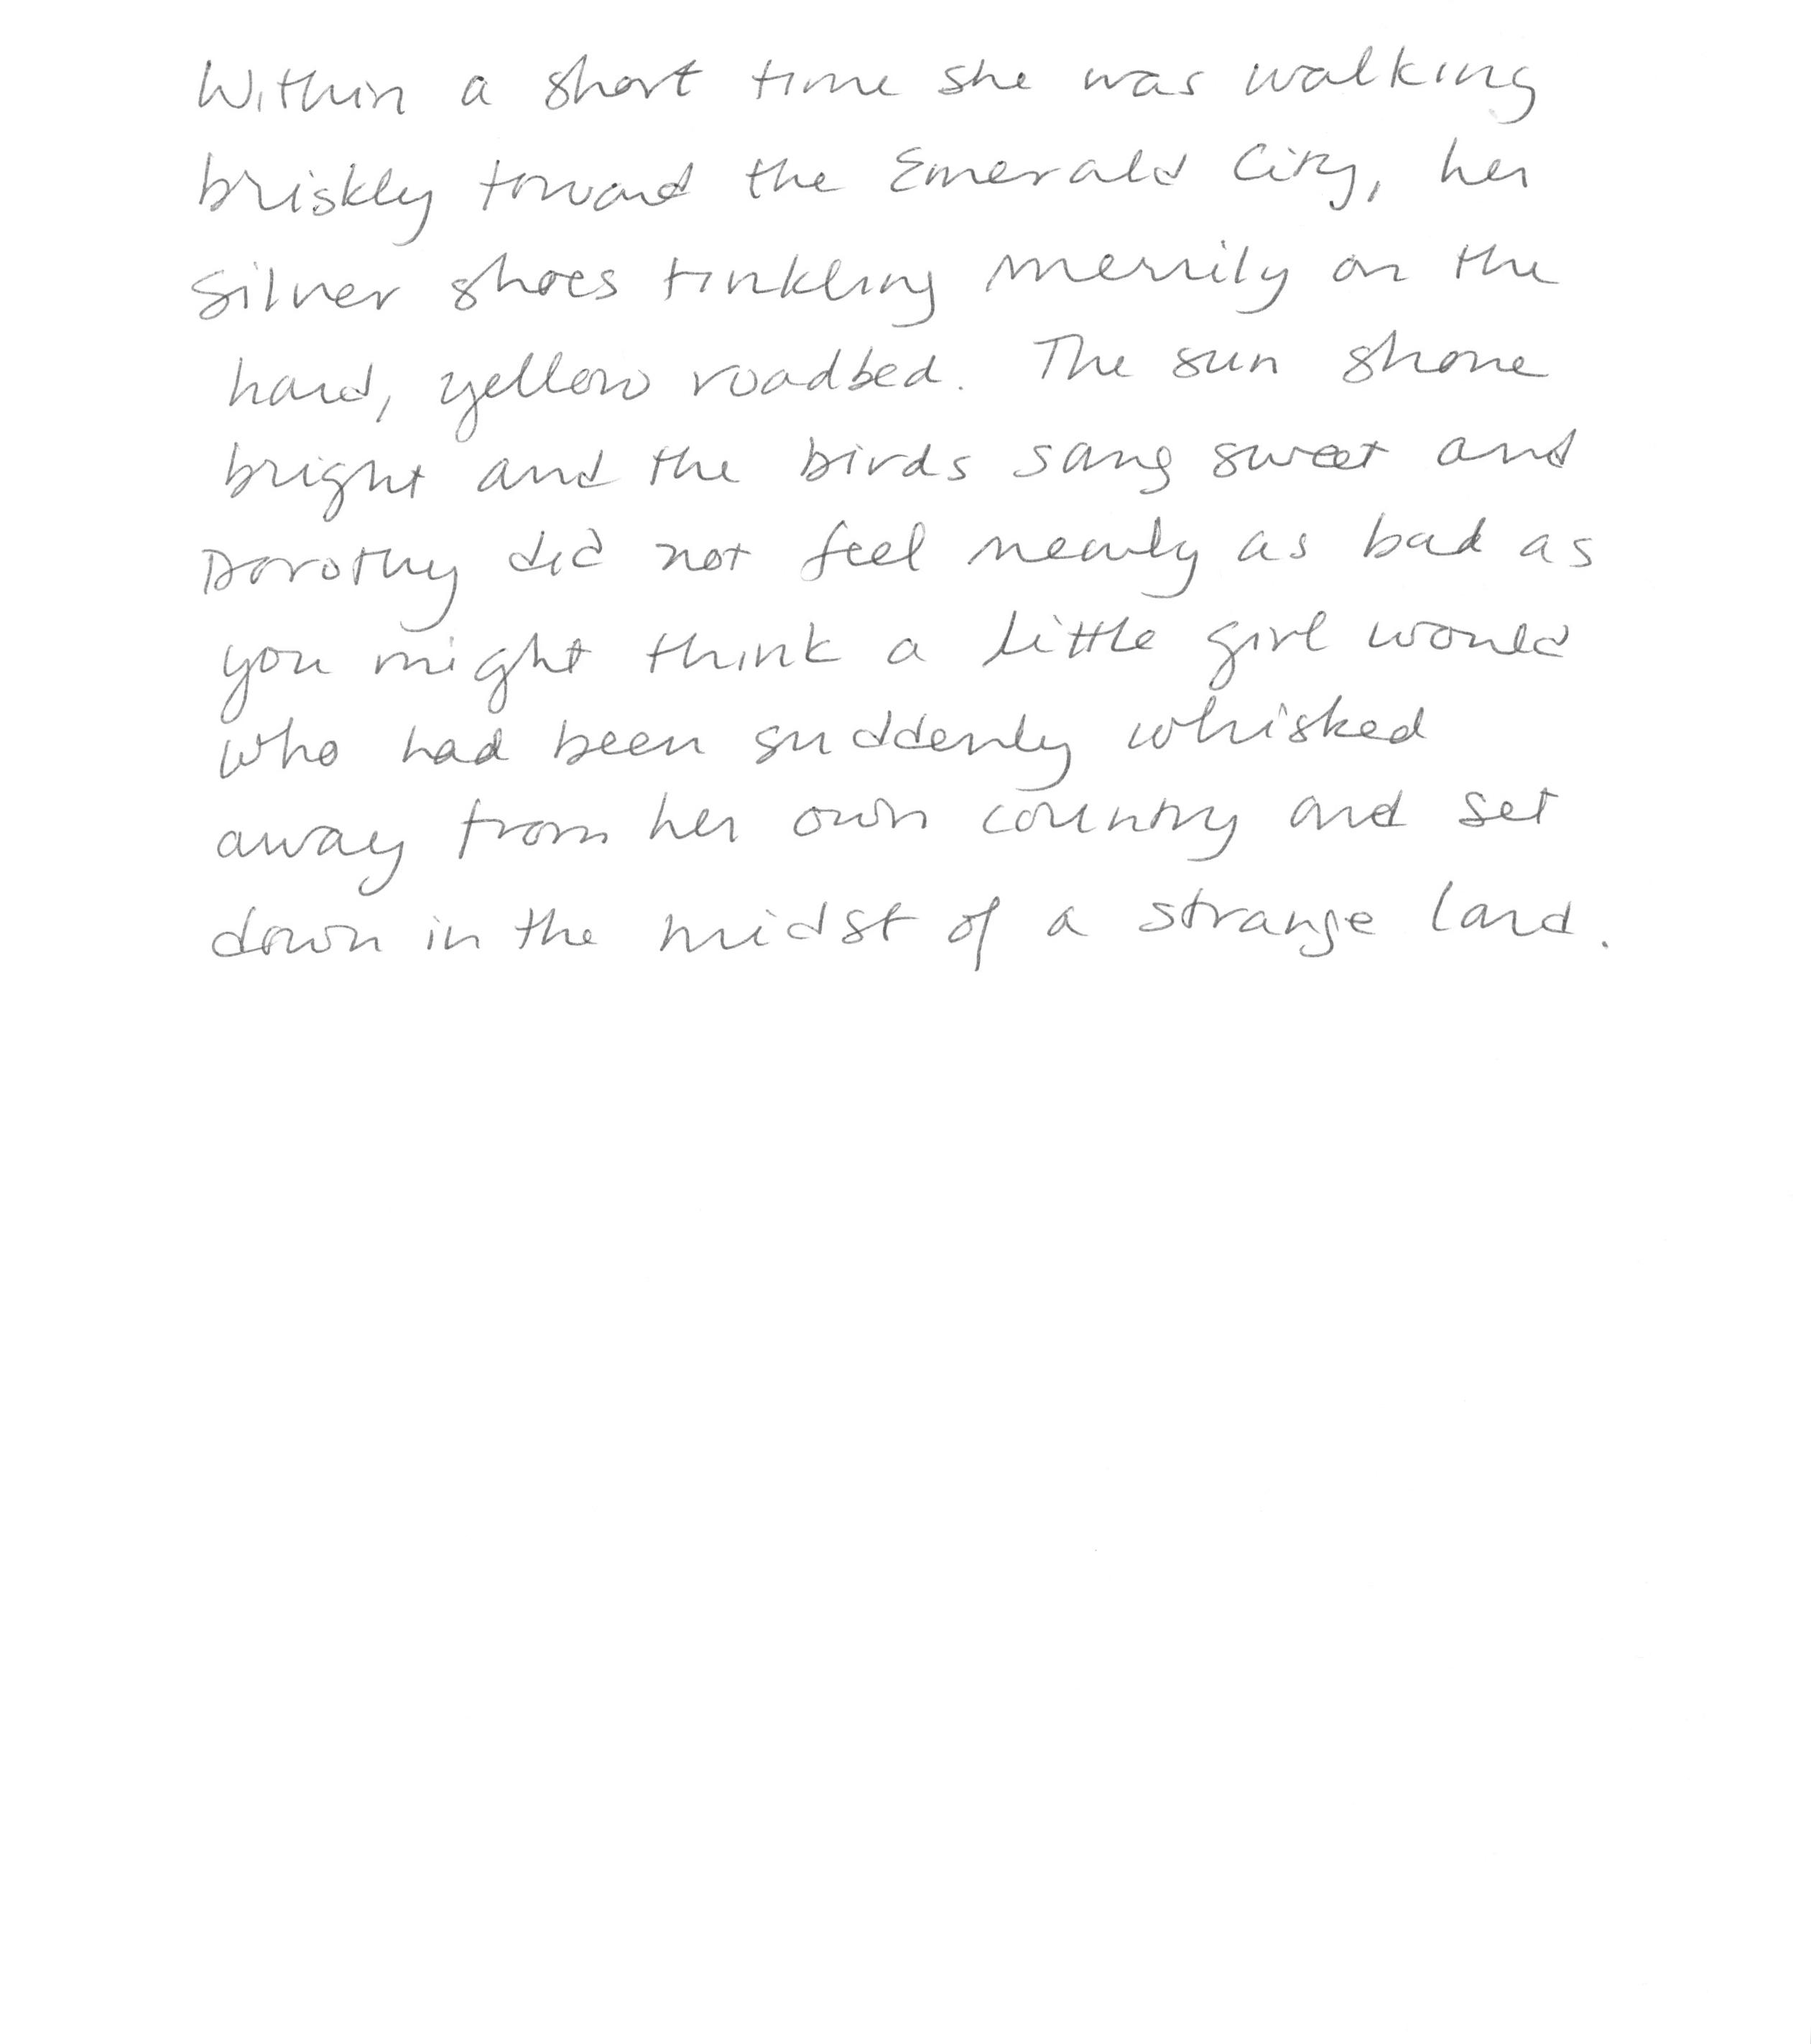 Within a short time she was walking
briskly toward the Emerald City, her
silver shoes tinkling merrily on the
hard, yellow roadbed. The sun shone
bright and the birds sang sweet and
Dorothy did not feel nearly as bad as
you might think a little girl would
who had been suddenly whisked
away from her own country and set
down in the midst of a strange land.